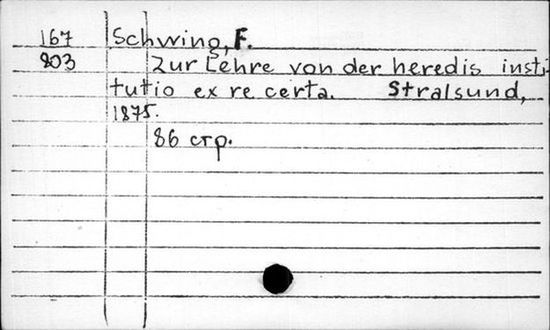 167 Schwing, F.
803 Zur Lehre von der heredis insti-
tutio ex re certa. Stralsund,
1875.
86 стр.